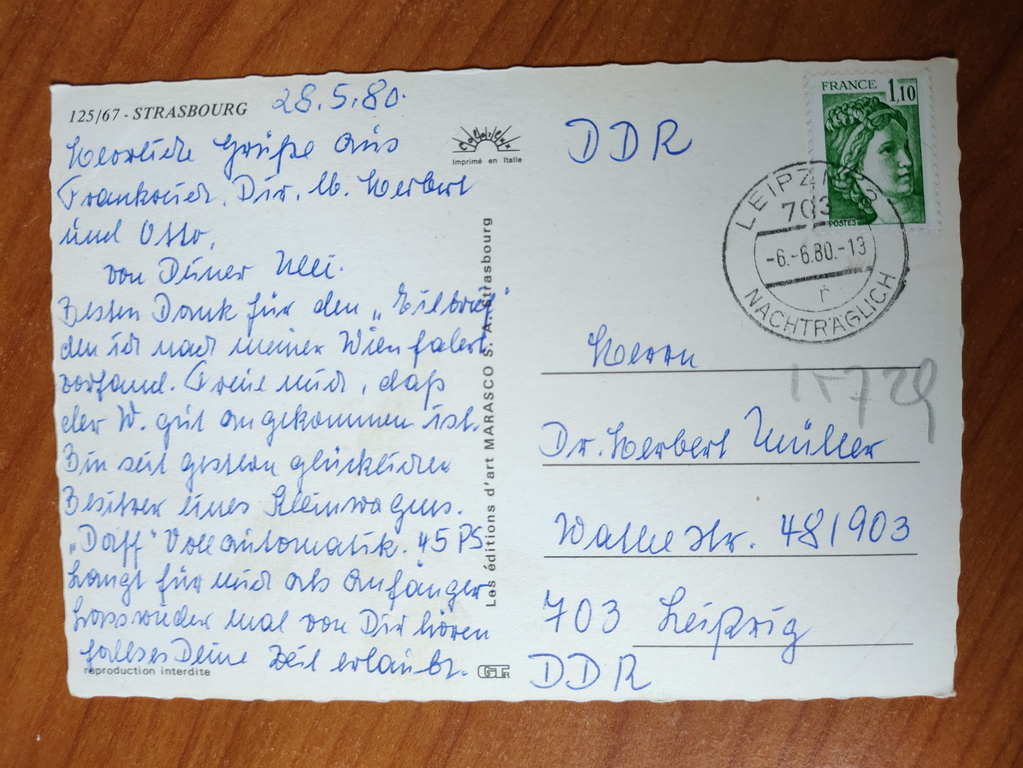 125/67 - STRASBOURG 28.5.80.
Herzliche Grüße aus
Frankreich. Dir, lb. Herbert
und Otto,
von Deiner Illi.
Besten Dank für den „Eilbrief"
den ich nach meiner Wienfahrt
vorfand. Freue mich, daß
der W. gut angekommen ist.
Bin seit gestern glücklicher
Besitzer eines Kleinwagens.
„Daff" Vollautomatik. 45 PS
Langt für mich als Anfänger
Lass wieder mal von Dir hören
falls es Deine Zeil erlaubt.
reproduction interdite
Imprimé en Italie
Les éditions d'art MARASCO S. A. Strasbourg
DDR
FRANCE 1,10
POSTES
LEIPZIG
703
-6.-6.80.-13
r
NACHTRÄGLICH
15729
Herrn
Dr. Herbert Müller
str. 48/903
703 Leipzig
DDR